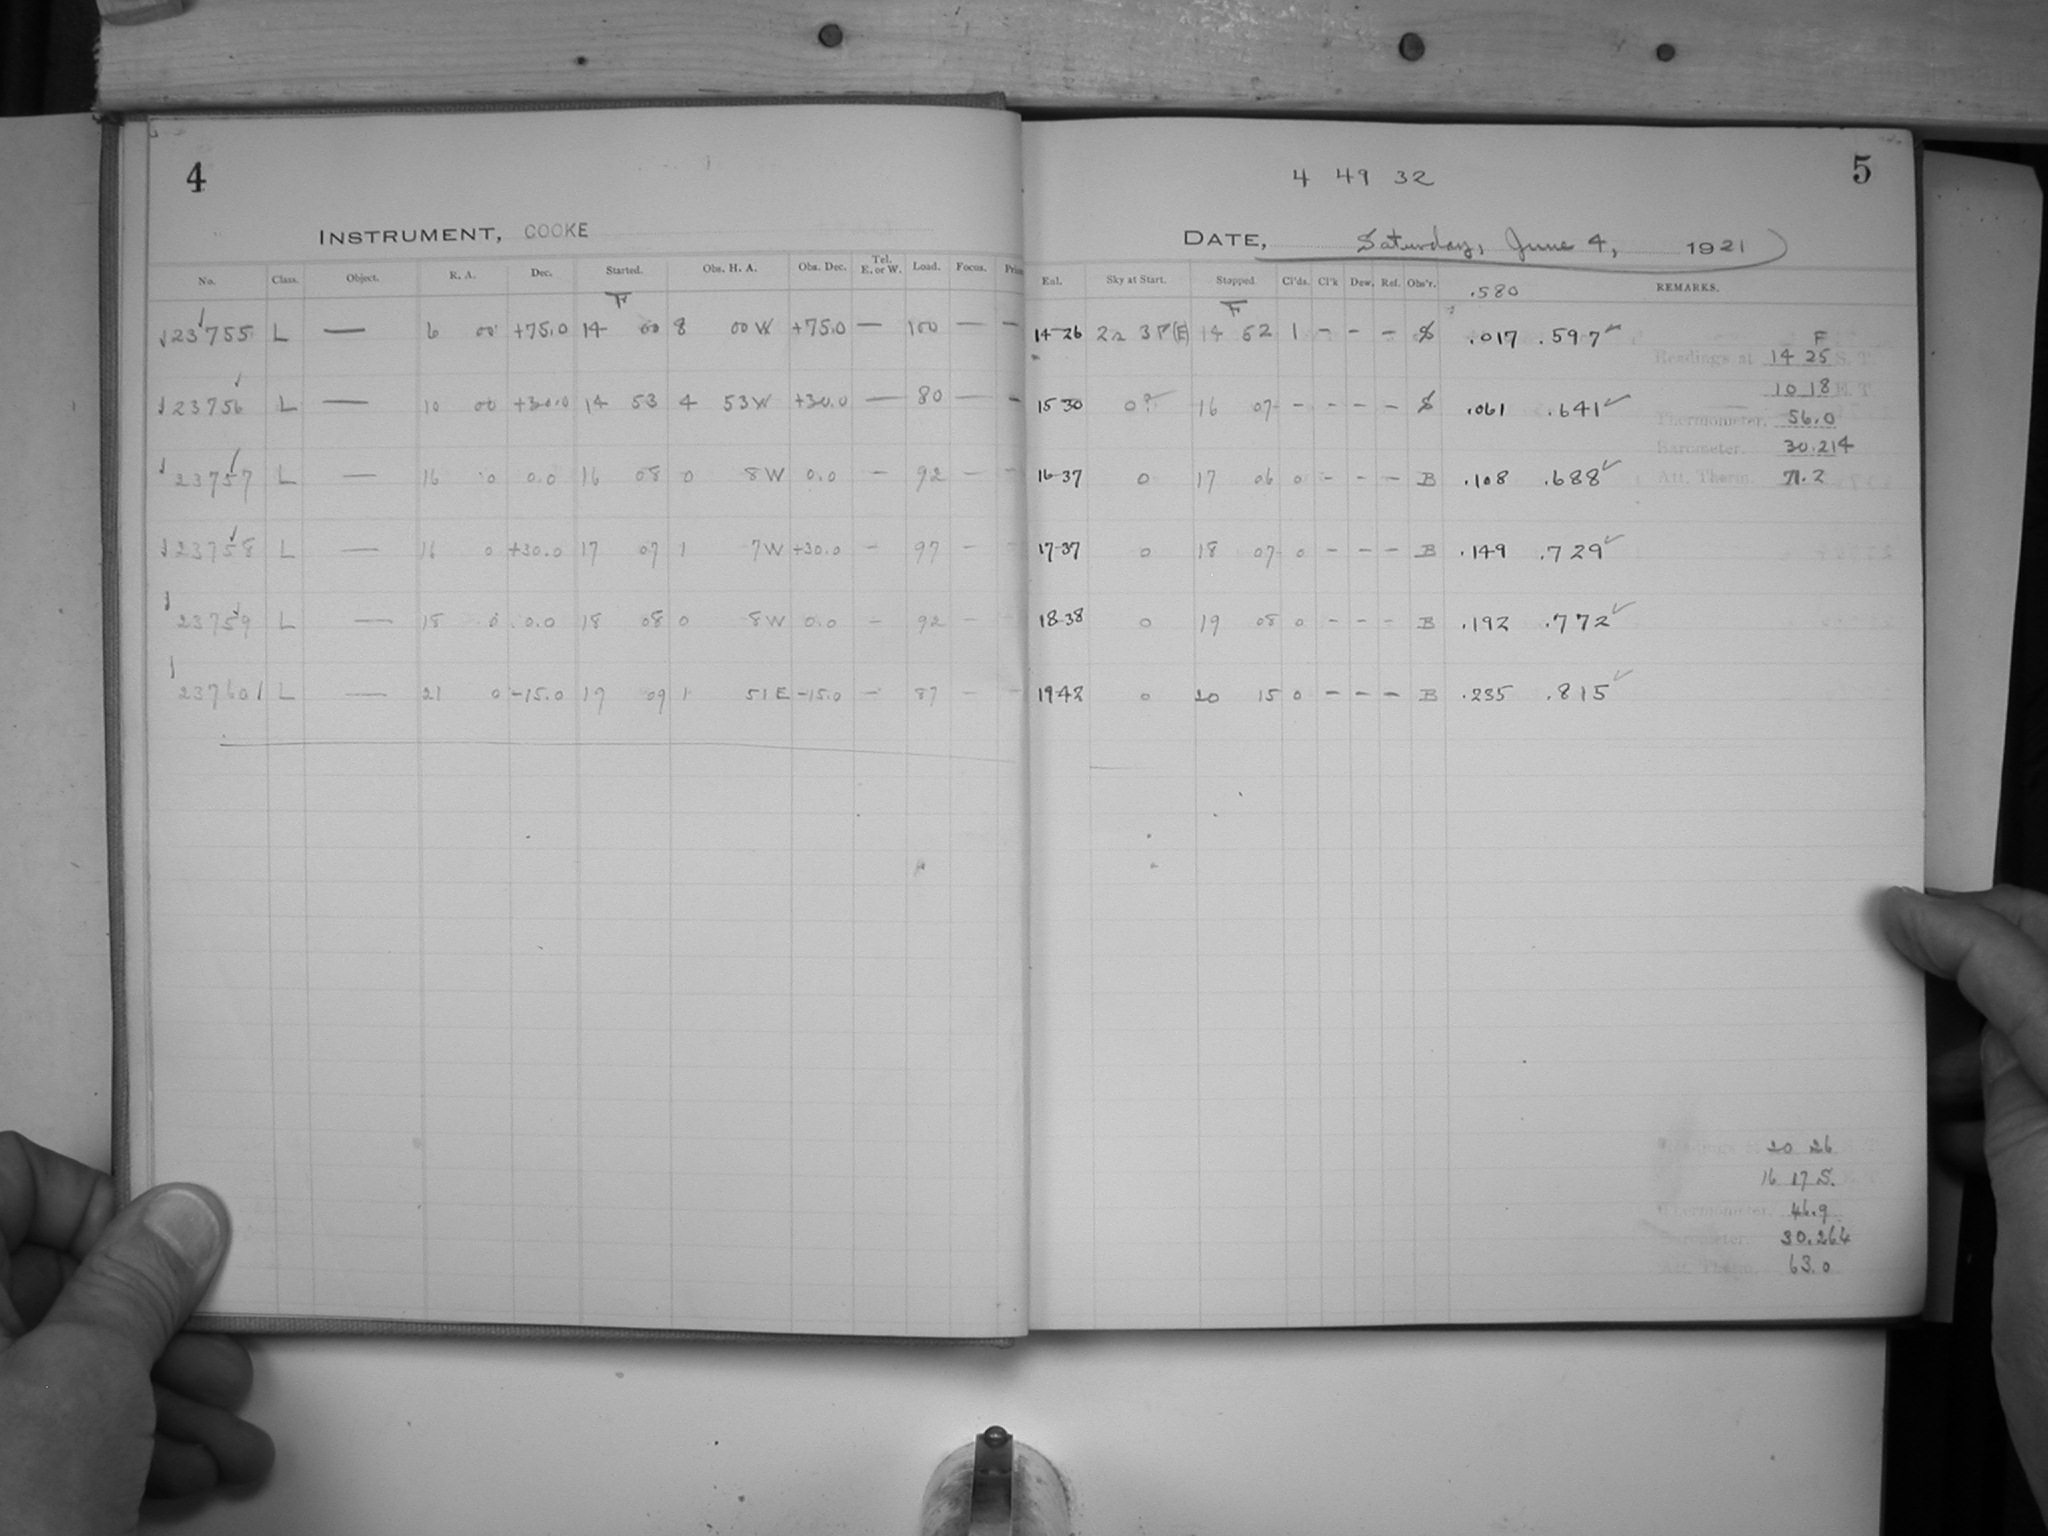 4
INSTRUMENT, COOKE
No. Class. Object. R. A. Dec. Started. Obs. H. A. Obs. Dec. Tel. E. or W. Load. Focus.
F
23755 L — 6 00 +75.0 14 00 8 00 W +75.0 — 100 — —
23756 L — 10 00 +30.0 14 53 4 53 W +30.0 — 80 — —
23757 L — 16 0 0.0 16 08 0 8 W 0.0 — 92 — —
23758 L — 16 0 +30.0 17 07 1 7 W +30.0 — 97 — —
23759 L — 18 0 0.0 18 08 0 8 W 0.0 — 92 — —
23760 L — 21 0 -15.0 19 09 1 51 E -15.0 — 87 — —
4 49 32
5
DATE, Saturday, June 4, 1921
Exl. Sky at Start. Stopped Cl'ds. Cl'k Dew. Ref. Obs'r. .580 REMARKS.
F
14-26 3P(E) 14 52 1 - - - S .017 .597 ✓
F
Readings at 14 25 S. T
10 18 E. T
15 30 0? 16 07 - - - - S .061 .641 ✓
Thermometer. 56.0
Barometer. 30.214
16-37 0 17 06 0 - - - B .108 .688 ✓
Att. Therm. 71.2
17-37 0 18 07 0 - - - B .149 .729 ✓
18-38 0 19 08 0 - - - B .192 .772 ✓
19-42 0 20 15 0 - - - B .235 .815 ✓
Readings at 20 26
16 17 S.
Thermometer. 46.9
Barometer. 30.264
Att. Therm. 63.0